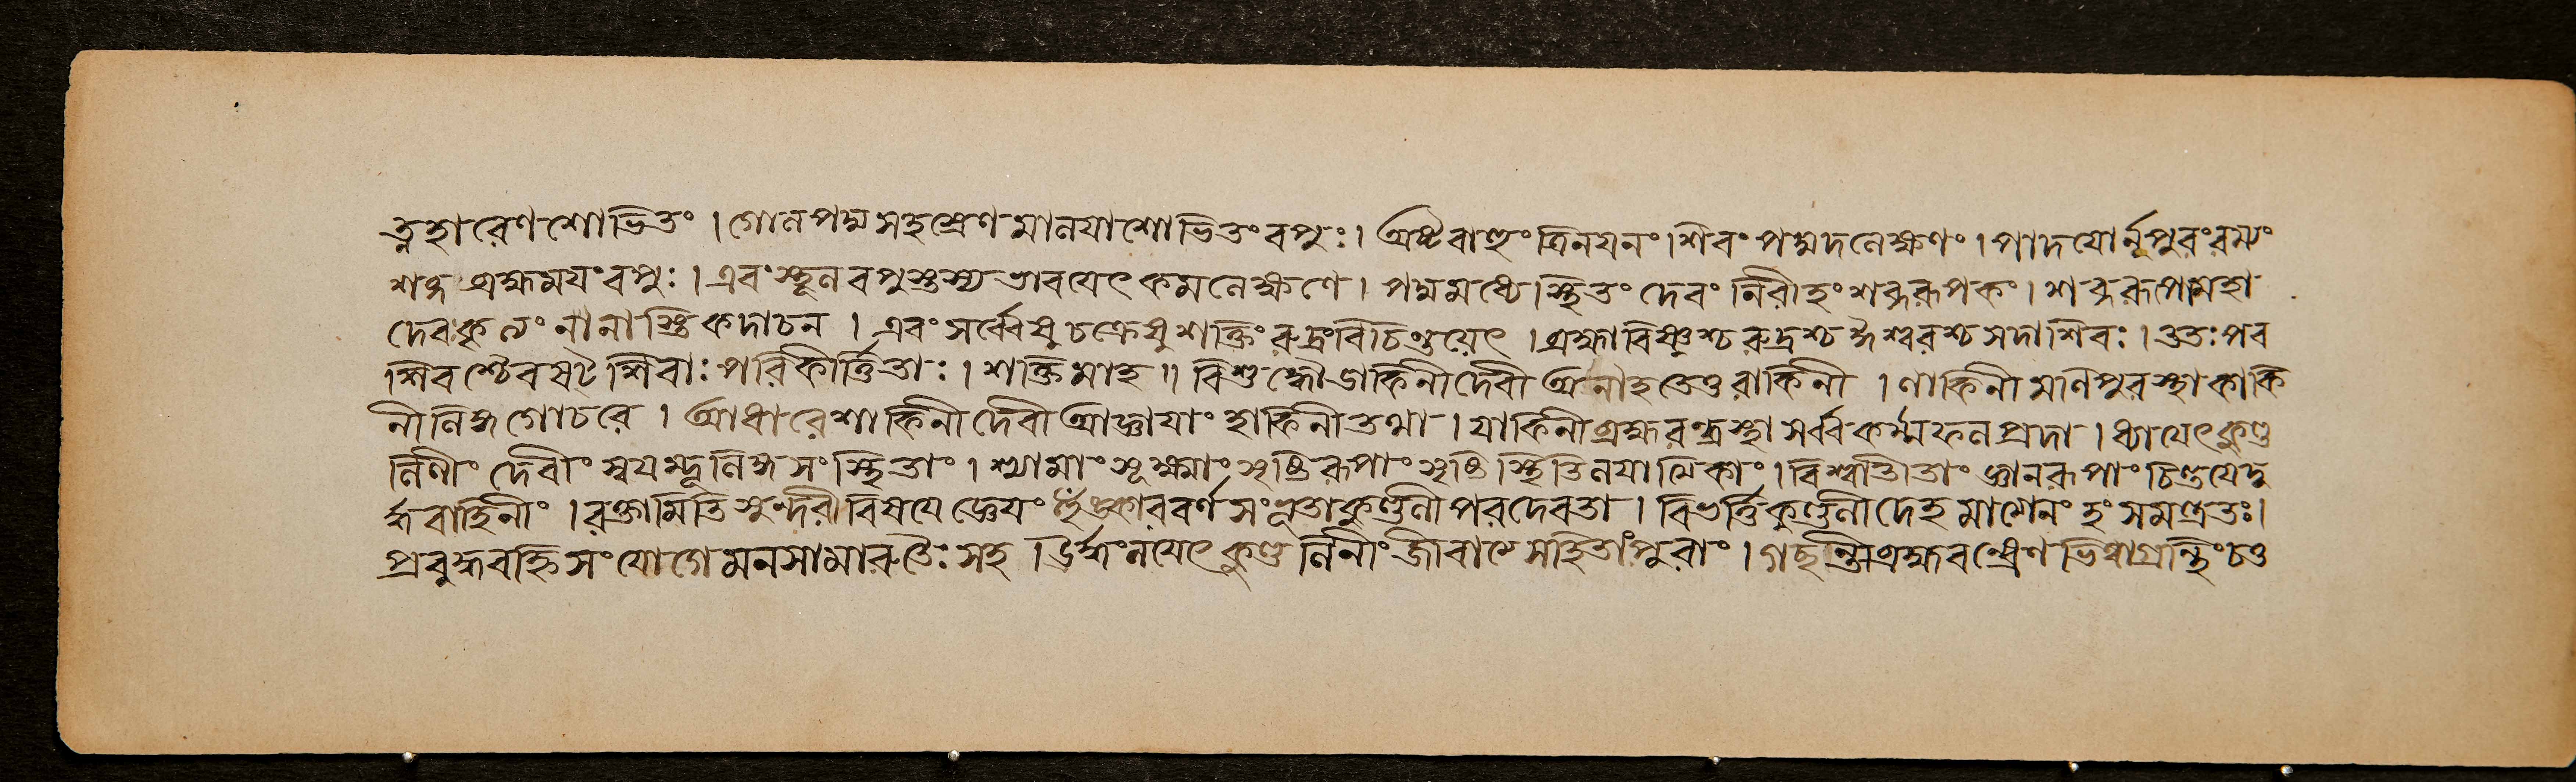 ত্নহারেণ শোভিতং । গোলপদ্মসহস্রেণ মালয়া শোভিতং বপুঃ । অষ্টবাহুং ত্রিনয়নং । শিবং পদ্মদলেক্ষণং । পাদয়োর্নূপুরং রম্যং
শব্দব্রহ্মময়ং বপুঃ । এবং স্থূলবপুস্তস্য ভাবয়েৎ কমলেক্ষণে । পদ্মমধ্যে স্থিতং দেবং নিরীহং শব্দরূপকং । শব্দরূপমহা
দেবকুলং নানাস্তি কদাচন । এবং সর্ব্বেষু চক্রেষু শক্তিং রুদ্রং বিচিন্তয়েৎ । ব্রহ্মা বিষ্ণুশ্চ রুদ্রশ্চ ঈশ্বরশ্চ সদাশিবঃ । ততঃ পর
শিবশ্চৈব ষট্ শিবাঃ পরিকীর্ত্তিতাঃ । শক্তিমাহ ॥ বিশুদ্ধৌ ডাকিনী দেবী অনাহতেতু রাকিনী । লাকিনী মণিপুরস্থা কাকি
নী লিঙ্গগোচরে । আধারে শাকিনী দেবী আজ্ঞায়াং হাকিনী তথা । যাকিনী ব্রহ্মরন্ধ্রস্থা সর্ব্বকর্ম্মফলপ্রদা । ধ্যায়েৎ কুণ্ড
লিনীং দেবীং স্বয়ম্ভূলিঙ্গসংস্থিতাং । শ্যামাং সূক্ষ্মাং সৃষ্টিরূপাং সৃষ্টিস্থিতিলয়াত্মিকাং । বিশ্বাতীতাং জ্ঞানরূপাং চিন্তয়েদূ
র্দ্ধবাহিনীং । রক্তামিতি সুন্দরী বিষয়ে জ্ঞেয়ং হুঁঙ্কারবর্ণসংভূতা কুণ্ডলী পরদেবতা । বিভর্ত্তি কুণ্ডলী দেহমাত্মেনং হং সমশ্রিতঃ ।
প্রবুদ্ধবহ্নিসংযোগে মনসামারুতৈঃ সহ । ঊর্দ্ধং নয়েৎ কুণ্ডলিনীং জীবাত্মসহিতাং পুরাং । গচ্ছন্তী ব্রহ্মরন্ধ্রেণ ভিত্ত্বা গ্রন্থিং চত